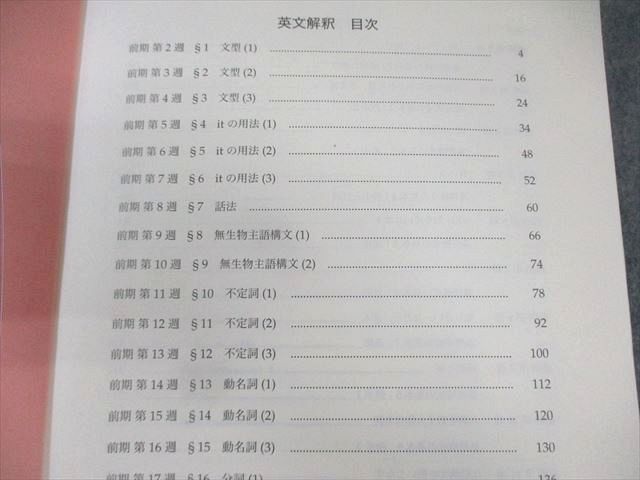 英文解釈 目次
前期 第2週 §1 文型 (1) 4
前期 第3週 §2 文型 (2) 16
前期 第4週 §3 文型 (3) 24
前期 第5週 §4 it の用法 (1) 34
前期 第6週 §5 it の用法 (2) 48
前期 第7週 §6 it の用法 (3) 52
前期 第8週 §7 話法 60
前期 第9週 §8 無生物主語構文 (1) 66
前期 第10週 §9 無生物主語構文 (2) 74
前期 第11週 §10 不定詞 (1) 78
前期 第12週 §11 不定詞 (2) 92
前期 第13週 §12 不定詞 (3) 100
前期 第14週 §13 動名詞 (1) 112
前期 第15週 §14 動名詞 (2) 120
前期 第16週 §15 動名詞 (3) 130
前期 第17週 §16 分詞 (1) 136